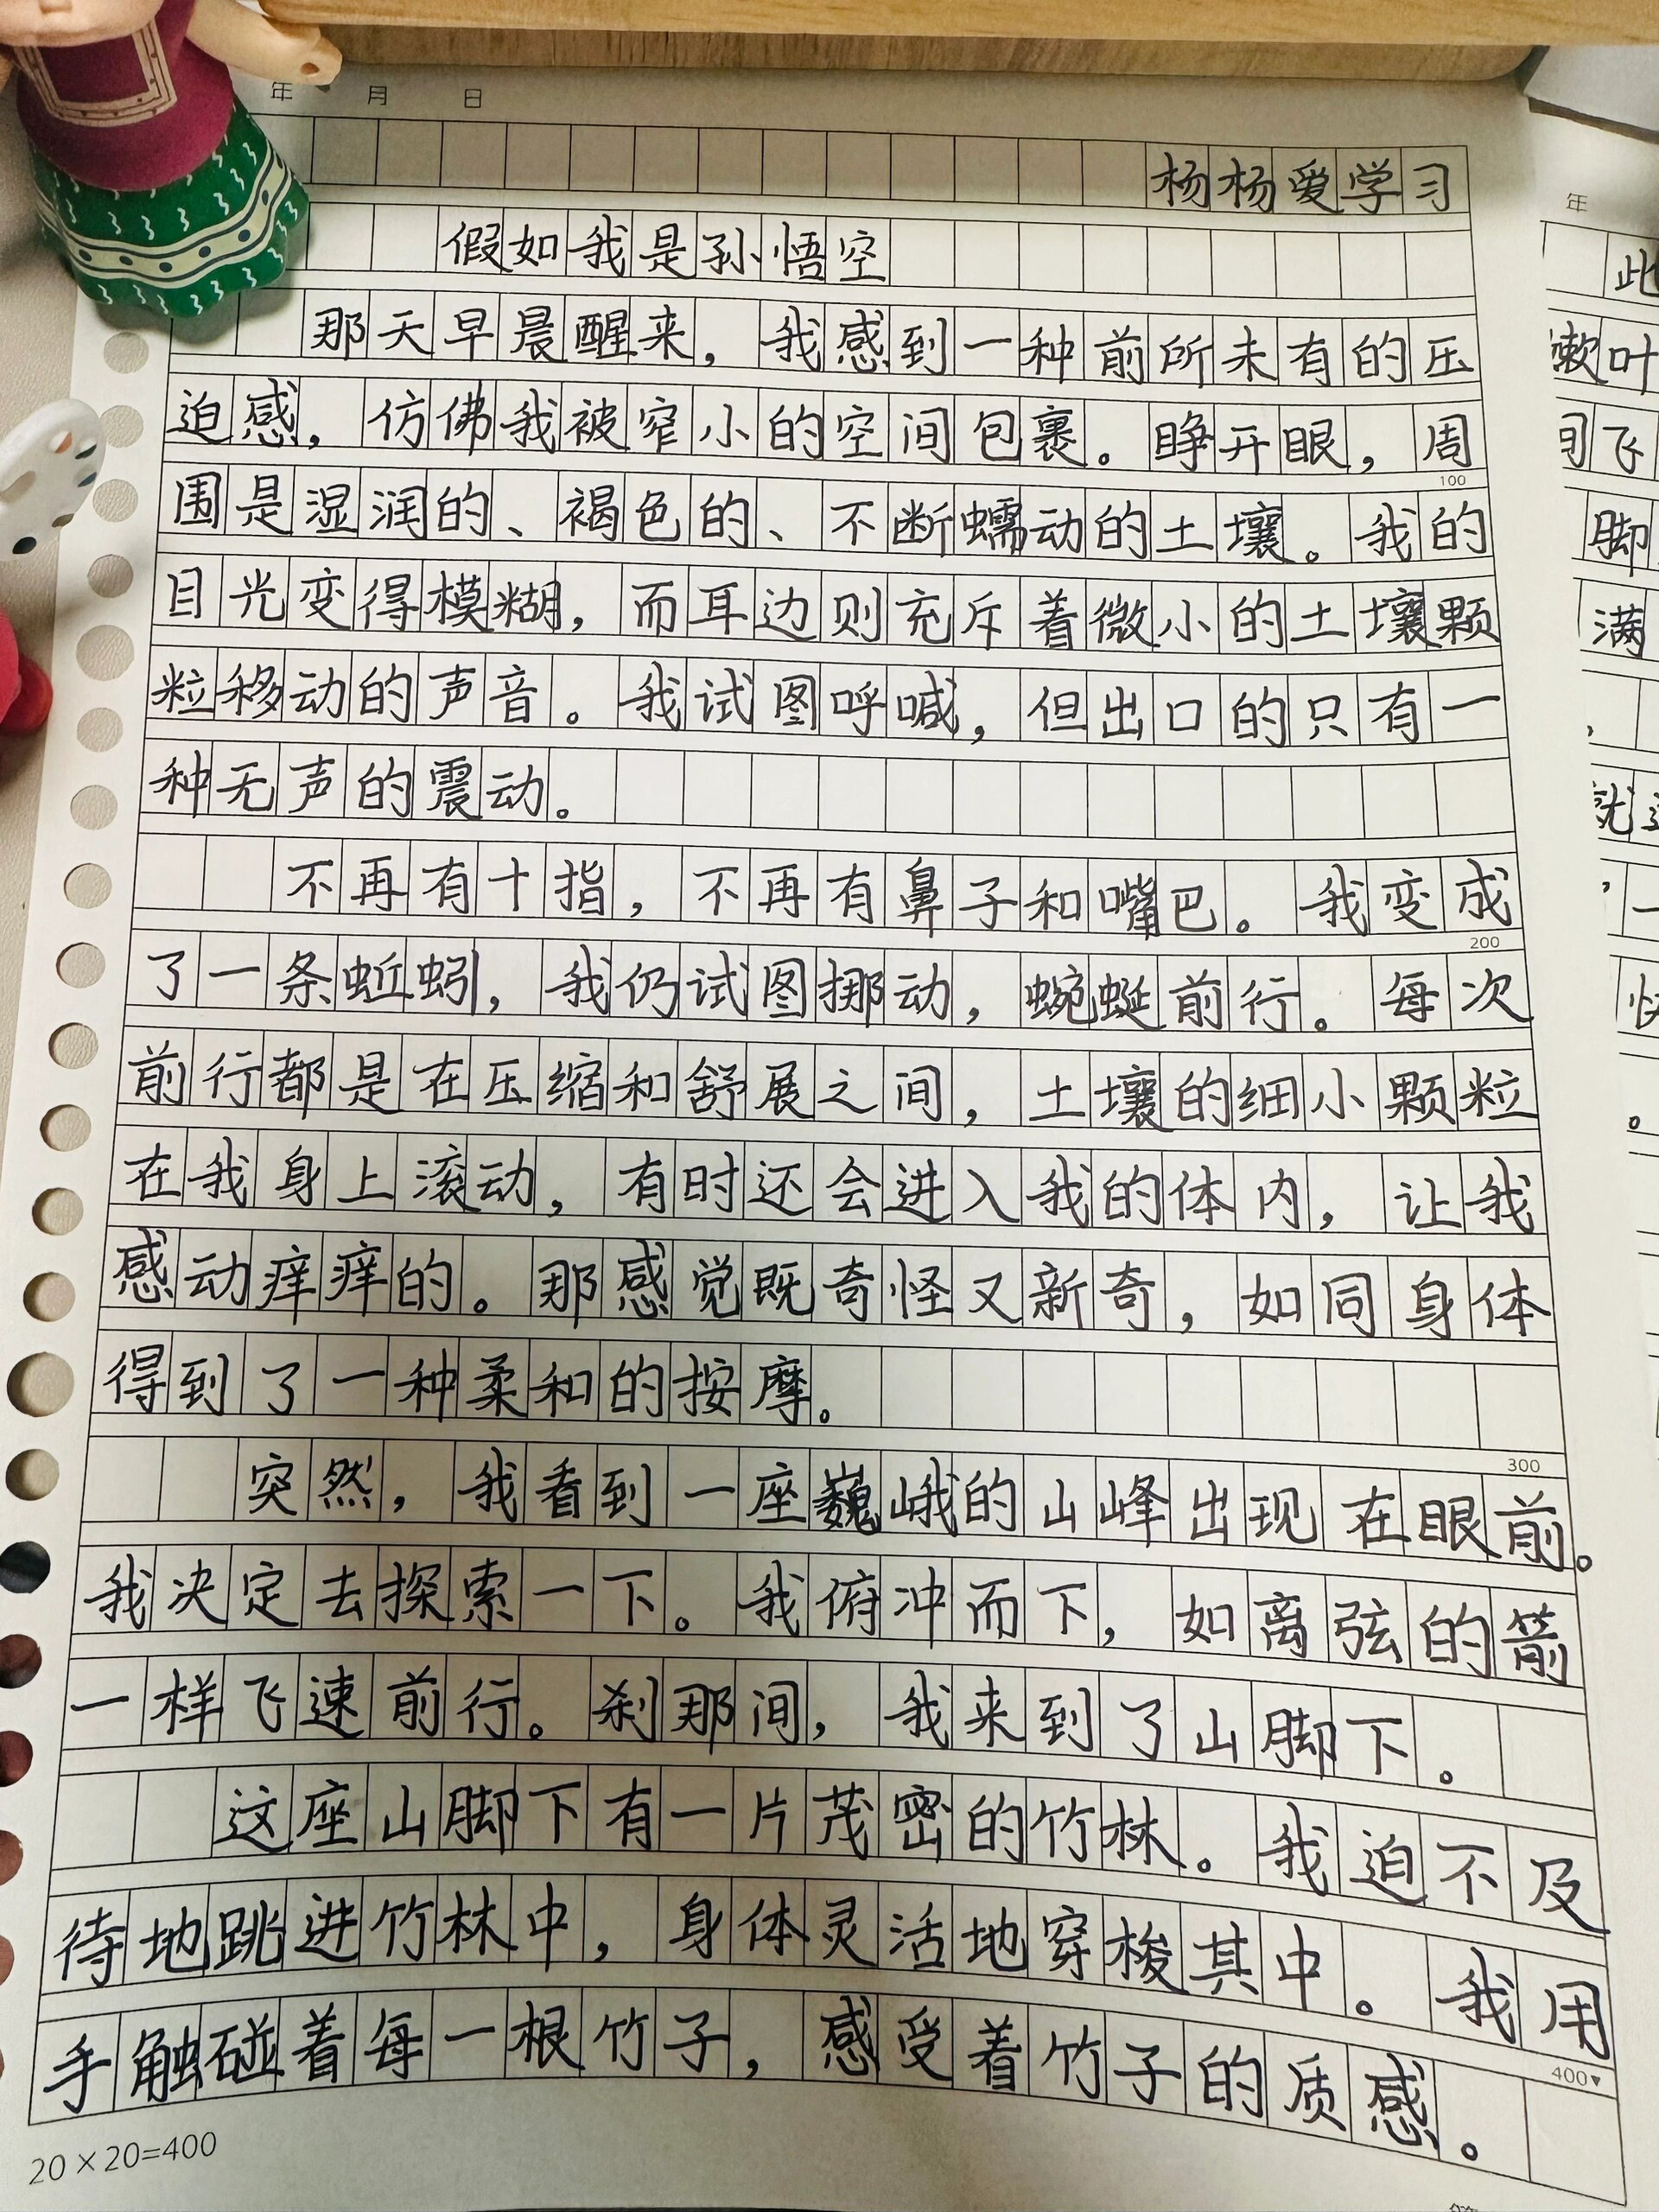 年 月 日
杨杨爱学习
假如我是孙悟空
那天早晨醒来，我感到一种前所未有的压
迫感，仿佛我被窄小的空间包裹。睁开眼，周
100
围是湿润的、褐色的、不断蠕动的土壤。我的
目光变得模糊，而耳边则充斥着微小的土壤颗
粒移动的声音。我试图呼喊，但出口的只有一
种无声的震动。
不再有十指，不再有鼻子和嘴巴。我变成
200
了一条蚯蚓，我仍试图挪动，蜿蜒前行。每次
前行都是在压缩和舒展之间，土壤的细小颗粒
在我身上滚动，有时还会进入我的体内，让我
感动痒痒的。那感觉既奇怪又新奇，如同身体
得到了一种柔和的按摩。
300
突然，我看到一座巍峨的山峰出现在眼前。
我决定去探索一下。我俯冲而下，如离弦的箭
一样飞速前行。刹那间，我来到了山脚下。
这座山脚下有一片茂密的竹林。我迫不及
待地跳进竹林中，身体灵活地穿梭其中。我用
手触碰着每一根竹子，感受着竹子的质感。
400▼
20×20=400
年
此
嗽叶
飞
脚
满
一